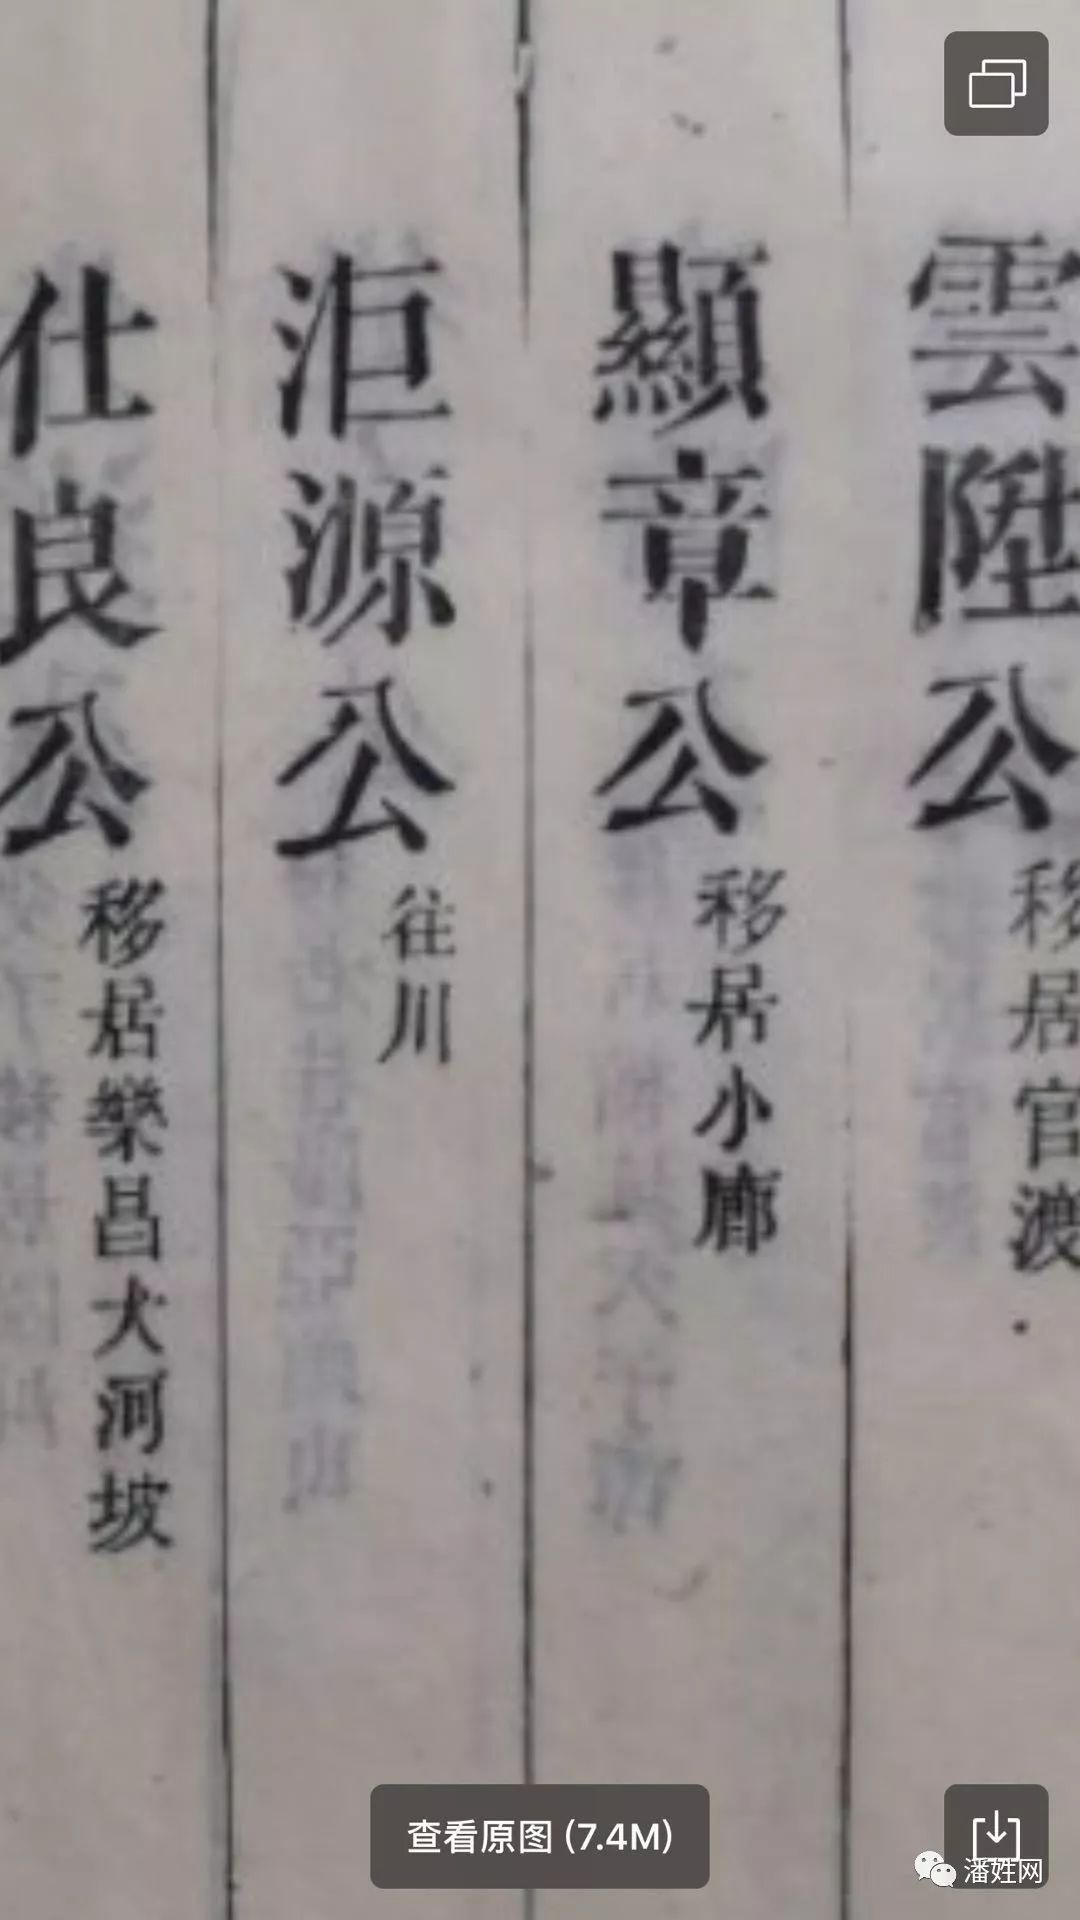 雲陞公 移居官渡
顯章公 移居小廊
洰源公 往川
仕良公 移居樂昌大河坡
查看原图 (7.4M)
潘姓网